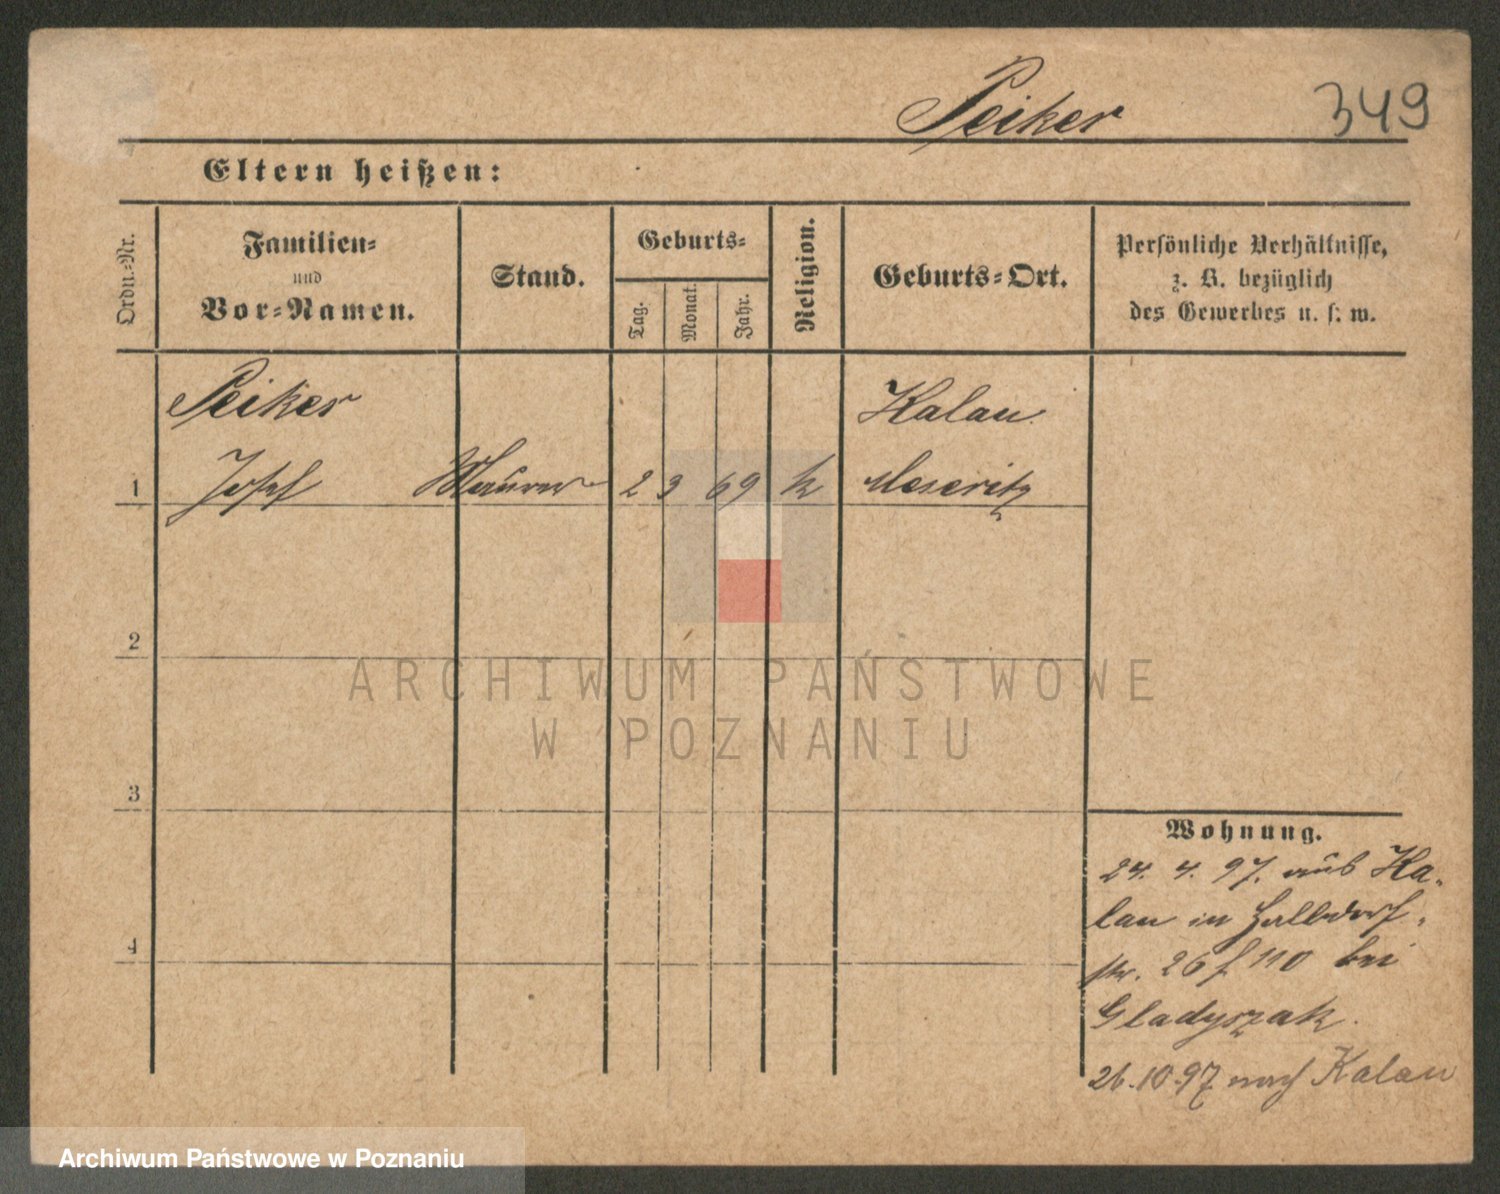 Peiker 349
Eltern heißen:
Ordn.-Nr.
Familien-
und
Vor-Namen.
Stand.
Geburts-
Tag.
Monat.
Jahr.
Religion.
Geburts-Ort.
Persönliche Verhältnisse,
z. B. bezüglich
des Gewerbes u. s. w.
Peiker Kalau
1 Josef Maurer 2 3 69 k Meseritz
2
3
4
Wohnung.
24. 4. 97. aus Ka-
lau in Halbdorf-
str. 26 f 110 bei
Gladyszak.
26.10.97 nach Kalau
ARCHIWUM PAŃSTWOWE
W POZNANIU
Archiwum Państwowe w Poznaniu